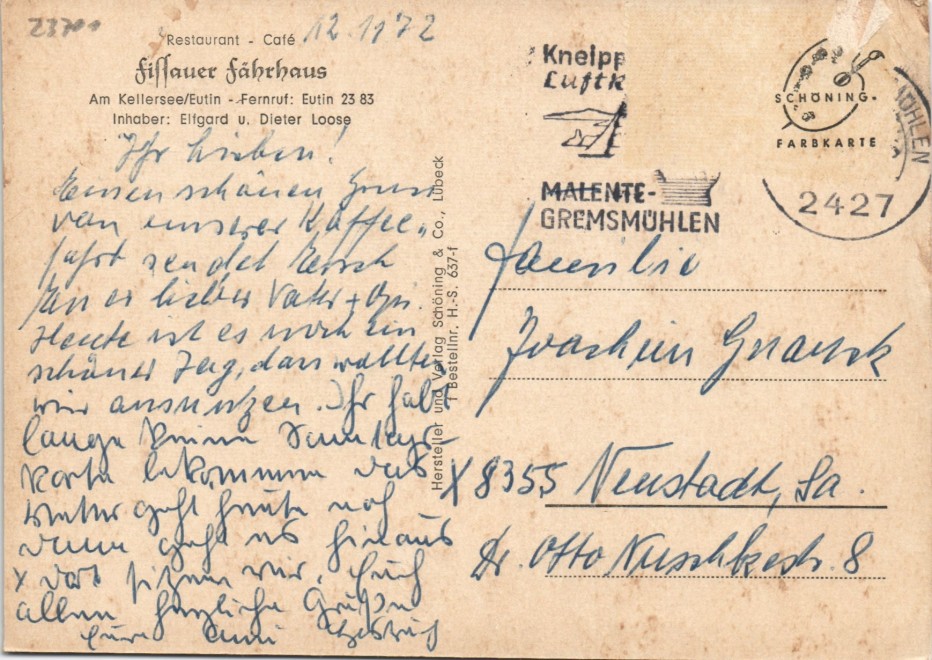 2370
12.11.72
Restaurant - Café
Fissauer Fährhaus
Am Kellersee/Eutin - Fernruf: Eutin 23 83
Inhaber: Elfgard u. Dieter Loose
Ihr Lieben!
Einen schönen Gruss
von unserer Kaffee„
fahrt sendet Euch
Euer lieber Vater + Opi.
Heute ist es noch ein
schöner Tag, dass wollten
wir ausnutzen. Ihr habt
lange keine Sonntags-
karte bekommen das
Wetter geht heute noch
dann geht es hinaus
x dort sitzen wir. Euch
allen herzliche Grüße
Eure
Hersteller und Verlag Schöning & Co., Lübeck
1 Bestellnr. H.-S. 637-f
Kneipp
Luftk
MALENTE-
GREMSMÜHLEN
SCHÖNING-
FARBKARTE
MÜHLEN
2427
Familie
Joachim
X 8355 Neustadt, Sa.
Dr. Otto Nuschkestr. 8